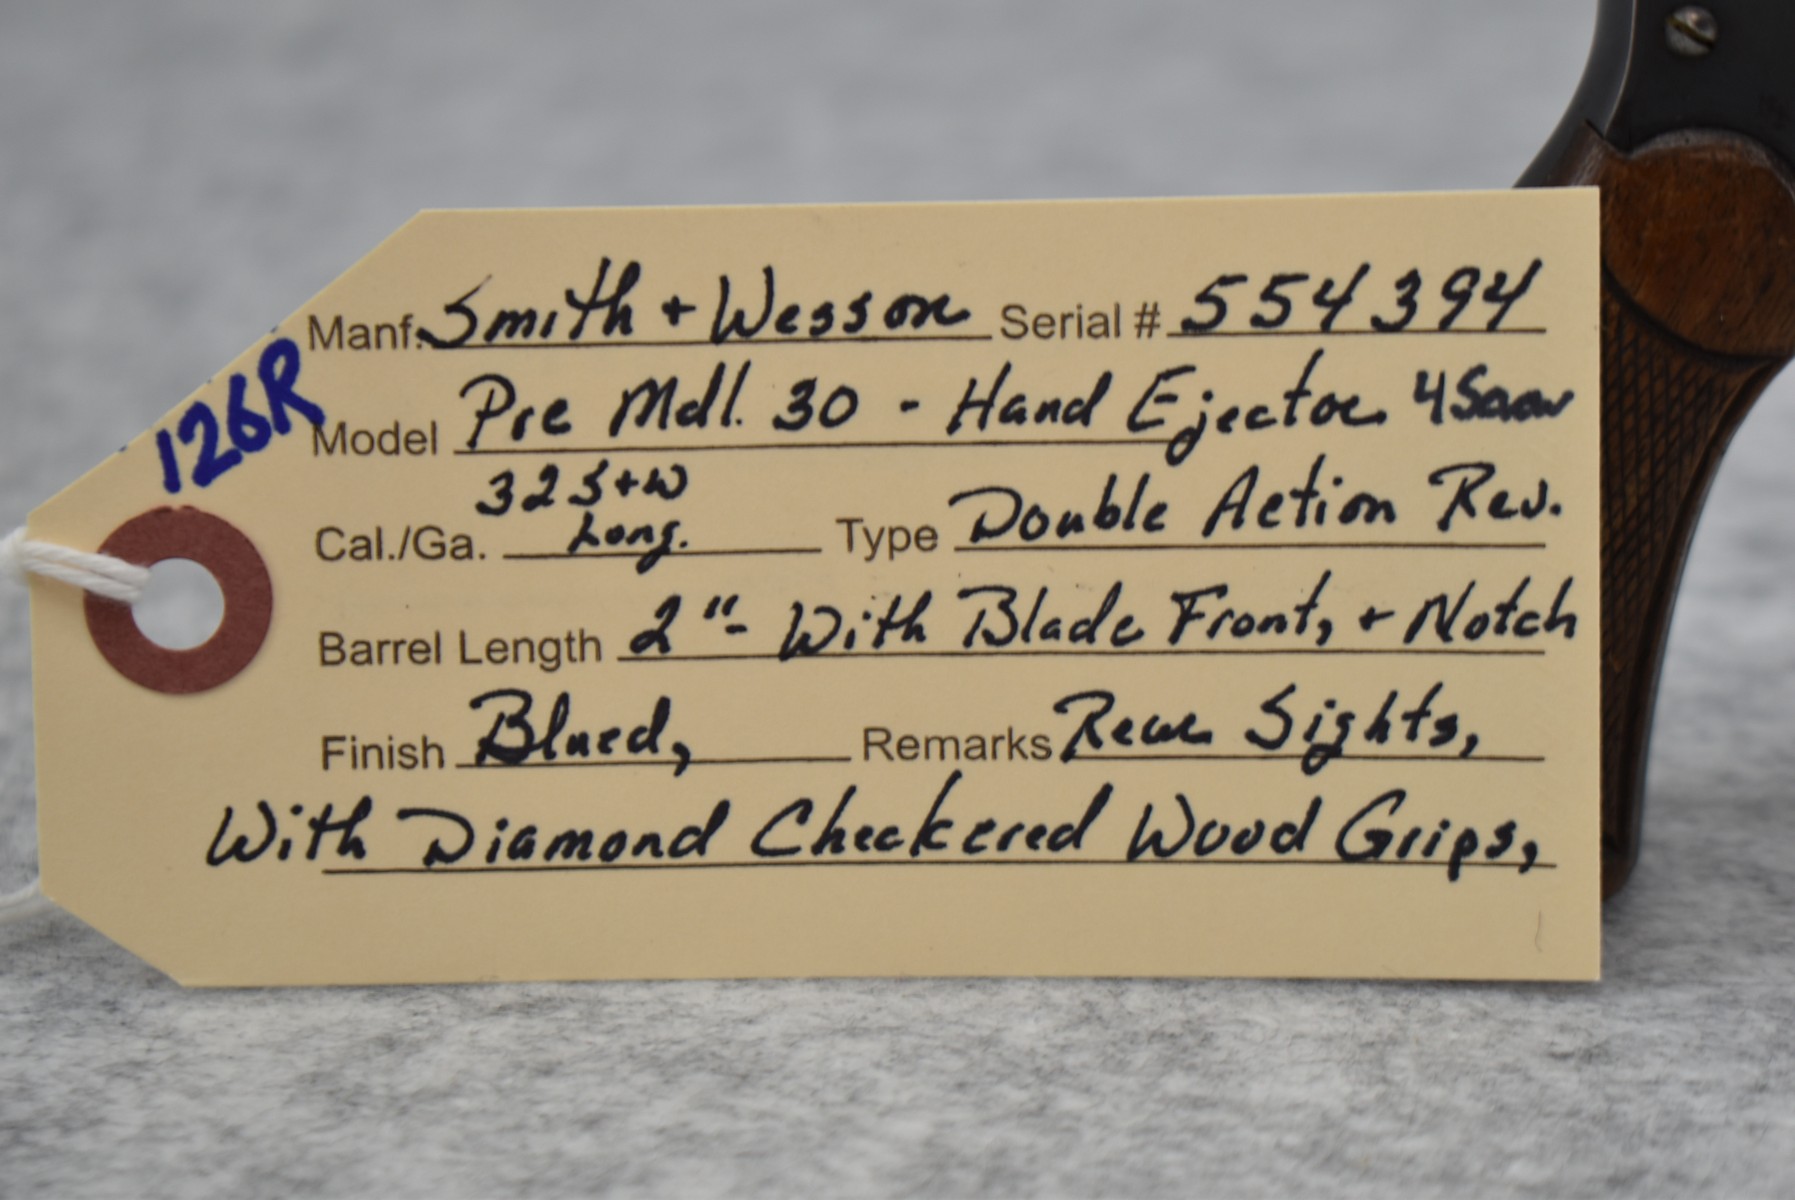 Manf. Smith + Wesson Serial # 554394
126R
Model Pre Mdl. 30 - Hand Ejector 4 Screw
32 S+W
Cal./Ga. Long. Type Double Action Rev.
Barrel Length 2"- With Blade Front, + Notch
Finish Blued, Remarks Rear Sights,
With Diamond Checkered Wood Grips,